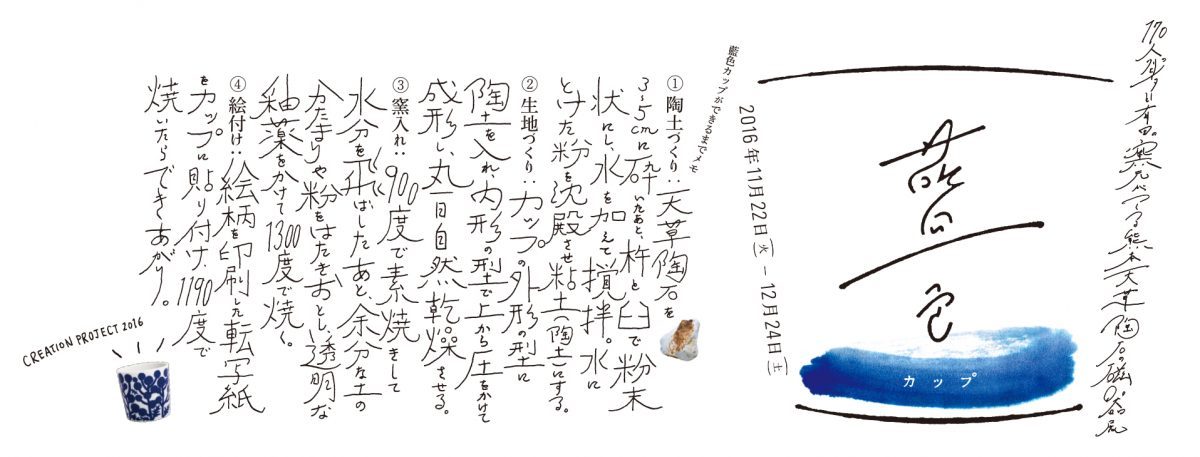 170人 有田の窯元がつくる熊本天草陶石の磁器展
藍色
カップ
2016年11月22日（火）ー12月24日（土）
藍色カップができるまでメモ
① 陶土づくり：天草陶石を
3~5cmに砕いたあと、杵と臼で粉末
状にし、水を加えて撹拌。水に
とけた粉を沈殿させ粘土（陶土）にする。
② 生地づくり：カップの外形の型に
陶土を入れ、内形の型で上から圧をかけて
成形し、丸一日自然乾燥させる。
③ 窯入れ：900度で素焼きして
水分を飛ばしたあと、余分な土の
かたまりや粉をはたきおとし、透明な
釉薬をかけて1300度で焼く。
④ 絵付け：絵柄を印刷した転写紙
をカップに貼り付け、1190度で
焼いたらできあがり。
CREATION PROJECT 2016